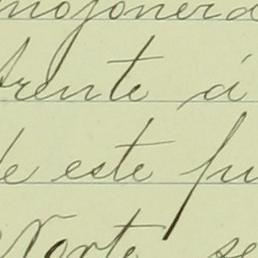 mojonera
frente á
de este pu
Norte se